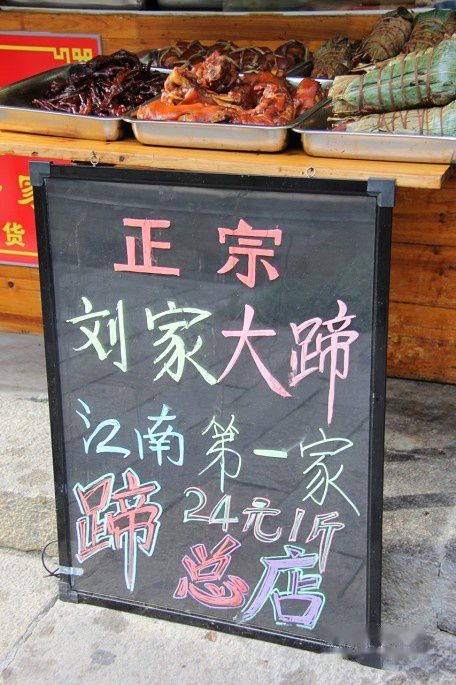 正宗
刘家大蹄
江南第一家
蹄24元1斤
总店
货